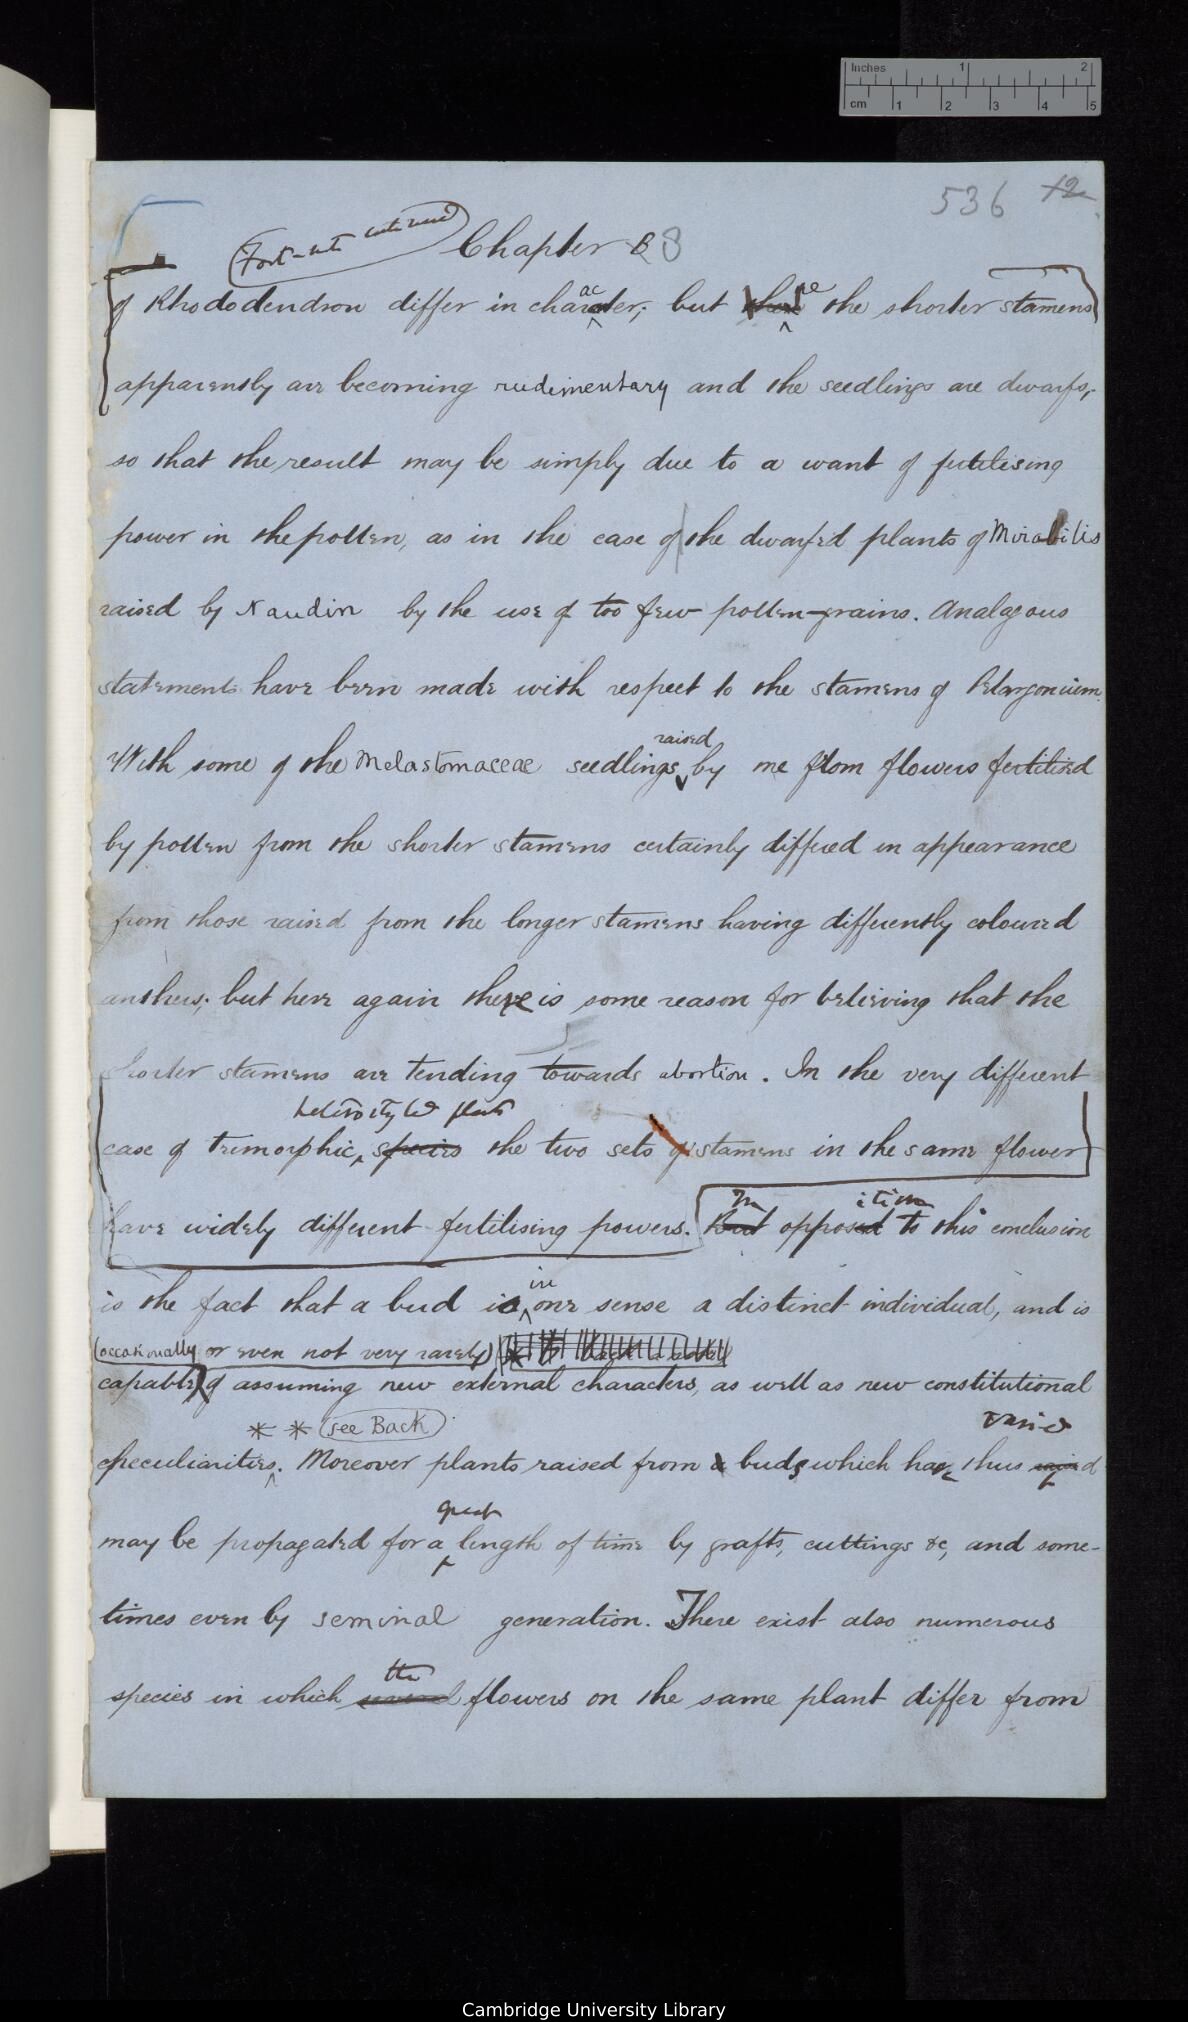 Inches 1 2
cm 1 2 3 4 5
536 12
(Foot-note continued)
Chapter 8
of Rhododendron differ in character; but here the shorter stamens
apparently are becoming rudimentary and the seedlings are dwarfs,
so that the result may be simply due to a want of fertilising
power in the pollen, as in the case of the dwarfed plants of Mirabilis
raised by Naudin by the use of too few pollen-grains. Analogous
statements have been made with respect to the stamens of Pelargonium.
With some of the Melastomaceae seedlings raised by me from flowers fertilised
by pollen from the shorter stamens certainly differed in appearance
from those raised from the longer stamens having differently coloured
anthers; but here again there is some reason for believing that the
shorter stamens are tending towards abortion. In the very different
heterostyled plants
case of trimorphic, species the two sets of stamens in the same flower
In ition
have widely different fertilising powers. But opposed to this conclusion
is the fact that a bud is in one sense a distinct individual, and is
(occasionally or even not very rarely)
capable of assuming new external characters, as well as new constitutional
** (see Back)
varied
peculiarities. Moreover plants raised from buds which have thus
great
may be propagated for a length of time by grafts, cuttings &c, and some-
times even by seminal generation. There exist also numerous
the
species in which several flowers on the same plant differ from
Cambridge University Library